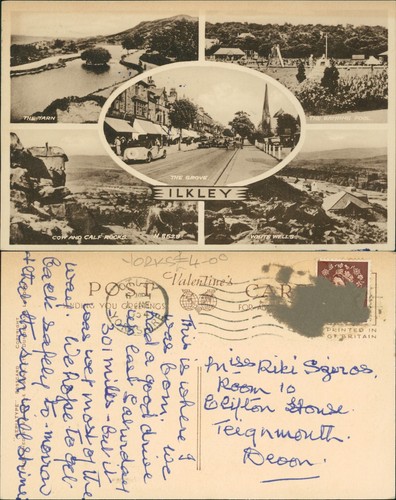 THE TARN
THE BATHING POOL
THE GROVE
ILKLEY
COW AND CALF ROCKS
N.5628
WHITE WELLS
YORKS £4-00
POST CARD
Valentine's
PRINTED IN
GT BRITAIN
This is where I
was born. We
had a good drive
up last Saturday
301 miles - but it
was wet most of the
way. We hope to get
back safely to-morrow
& that the sun will shine
Miss Riki
Room 10
Clifton House
Teignmouth
Devon.